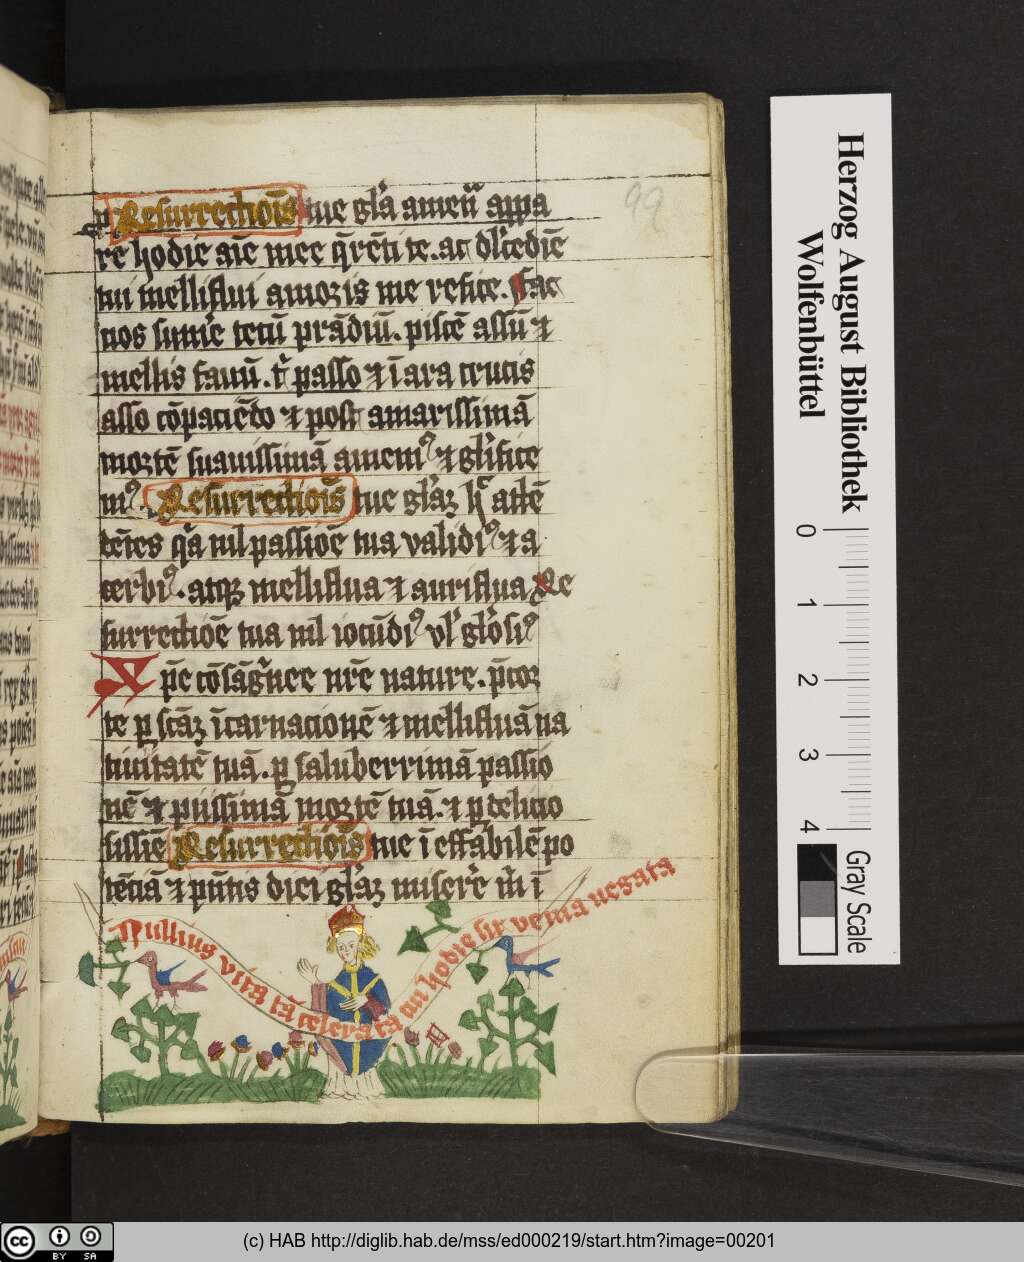 Resurrectiois tue gła amen appa
re hodie aie mee q̄rēti te. ac dłcediē
tui melliflui amoris me refice. Fac
nos sumˀe tecū prādiū. piscē assū ⁊
mellis fauū. passo ⁊ ī ara crucis
asso cōpaciēdo ⁊ post amarissimā
mortē suauissimā amemˀ ⁊ glˀifice
mˀ. Resurrectiois tue
tētes q̄a nil passiōe tua validiˀ ⁊ a
cerbiˀ. atqꝫ melliflua ⁊ auriflua Re
surrectiōe tua nil iocūdiˀ vł głosiˀ
Xp̄e cōsāgˀnee nr̄e nature. p̄cor
te ꝑ scāꝫ īcarnacionē ⁊ mellifluā na
tiuitatē tuā. ꝑ saluberrimā passio
nē ⁊ piissimā mortē tuā. ⁊ ꝑ delicio
sissiē Resurrectiois tue ī effabilē po
tēciā ⁊ diei misere m̄ ī
Nullius vita tā celerata an hodie sit venia negata
99
Herzog August Bibliothek
Wolfenbüttel
0 1 2 3 4
Gray Scale
cc BY SA
(c) HAB http://diglib.hab.de/mss/ed000219/start.htm?image=00201